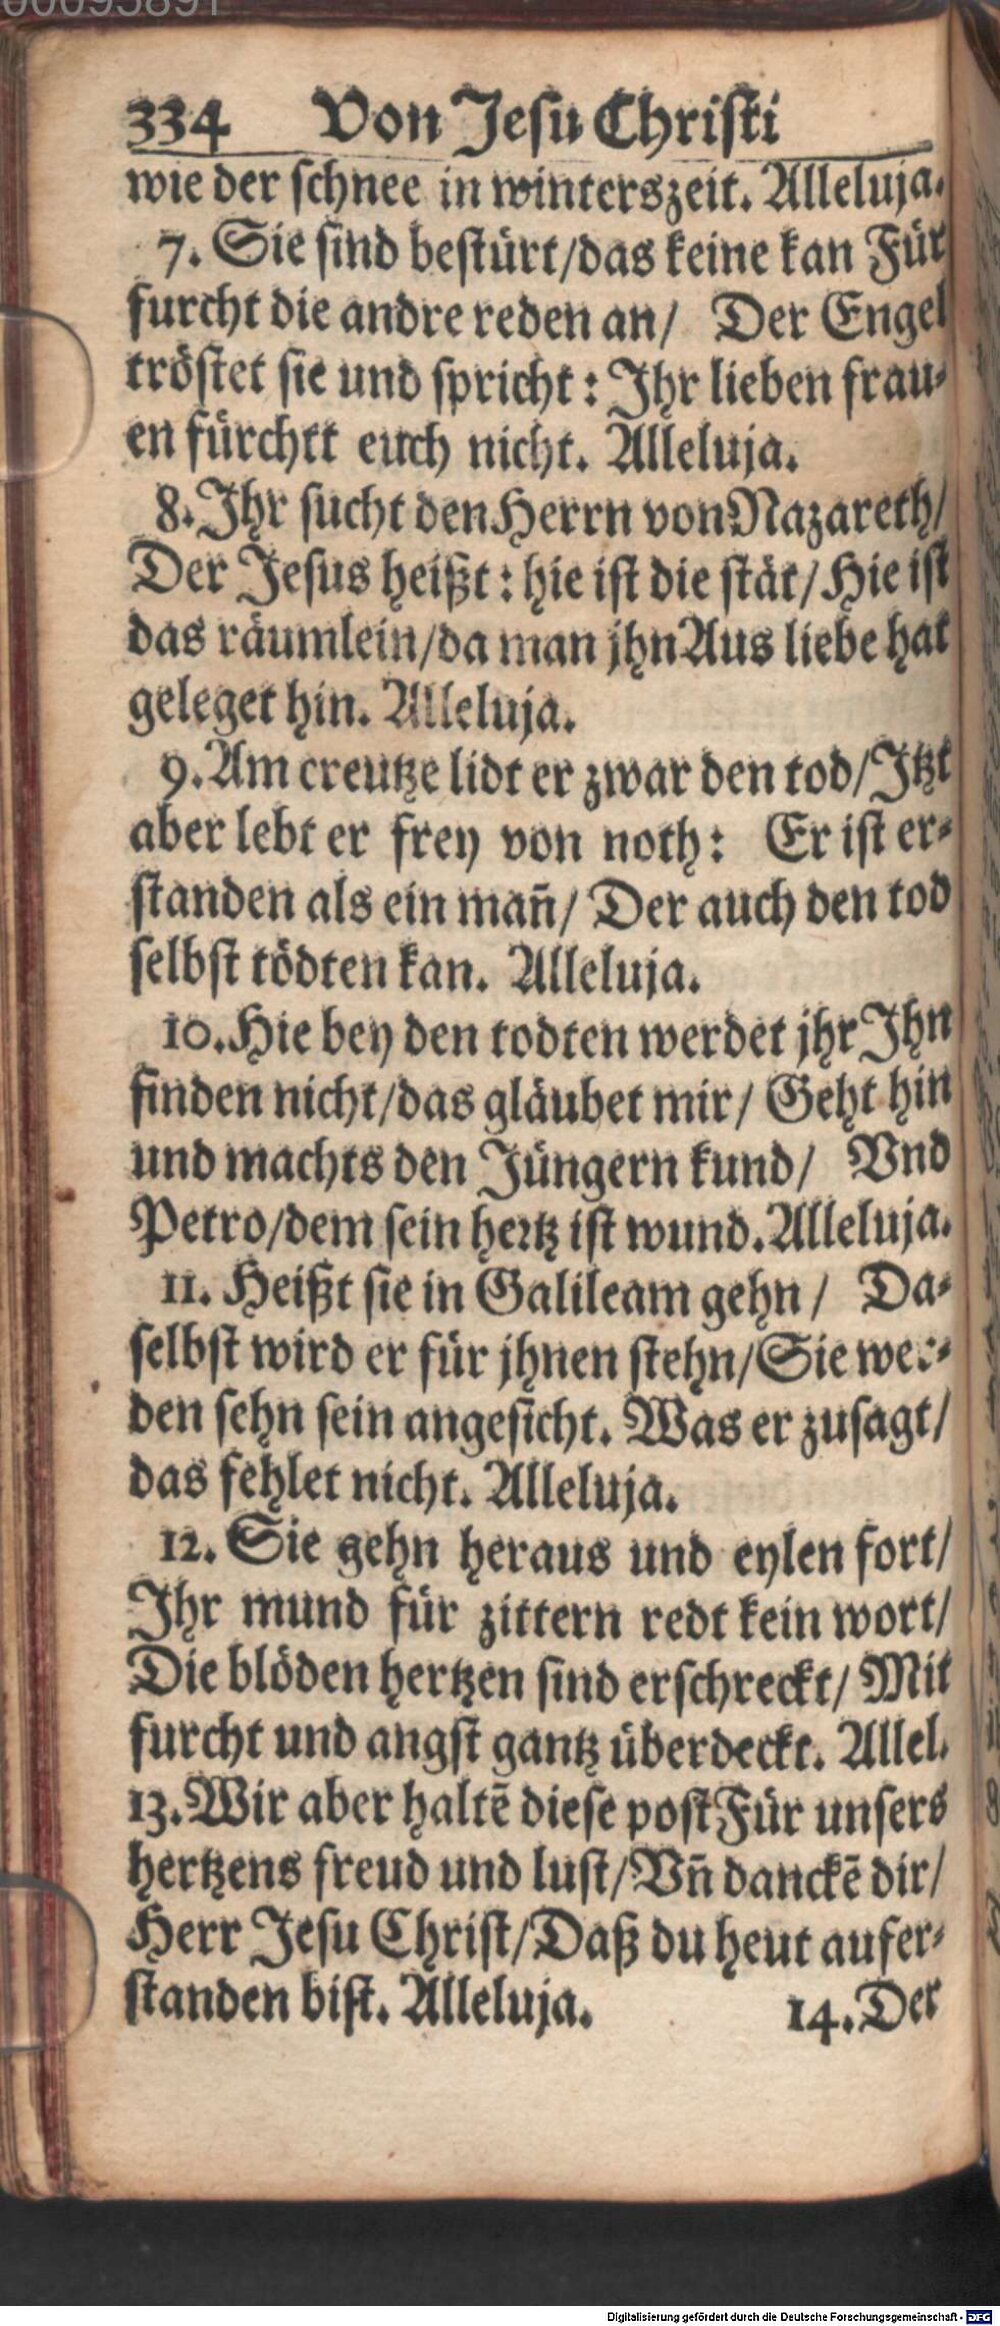 334 Von Jesu Christi
wie der schnee in winterszeit. Alleluja.
7. Sie sind bestürt/das keine kan Für
furcht die andre reden an/ Der Engel
tröstet sie und spricht: Ihr lieben frau-
en fürchtt euch nicht. Alleluja.
8. Ihr sucht den Herrn von Nazareth/
Der Jesus heißt: hie ist die stät/Hie ist
das räumlein/da man jhn Aus liebe hat
geleget hin. Alleluja.
9. Am creutze lidt er zwar den tod/Itzt
aber lebt er frey von noth: Er ist er-
standen als ein mañ/ Der auch den tod
selbst tödten kan. Alleluja.
10. Hie bey den todten werdet jhr Ihn
finden nicht/das gläubet mir/ Geht hin
und machts den Jüngern kund/ Vnd
Petro/dem sein hertz ist wund. Alleluja.
11. Heißt sie in Galileam gehn/ Da-
selbst wird er für jhnen stehn/Sie wer-
den sehn sein angesicht. Was er zusagt/
das fehlet nicht. Alleluja.
12. Sie gehn heraus und eylen fort/
Ihr mund für zittern redt kein wort/
Die blöden hertzen sind erschreckt/ Mit
furcht und angst gantz überdeckt. Allel.
13. Wir aber haltē diese post Für unsers
hertzens freud und lust/Vñ danckē dir/
Herr Jesu Christ/Daß du heut aufer-
standen bist. Alleluja. 14. Der
Digitalisierung gefördert durch die Deutsche Forschungsgemeinschaft - DFG